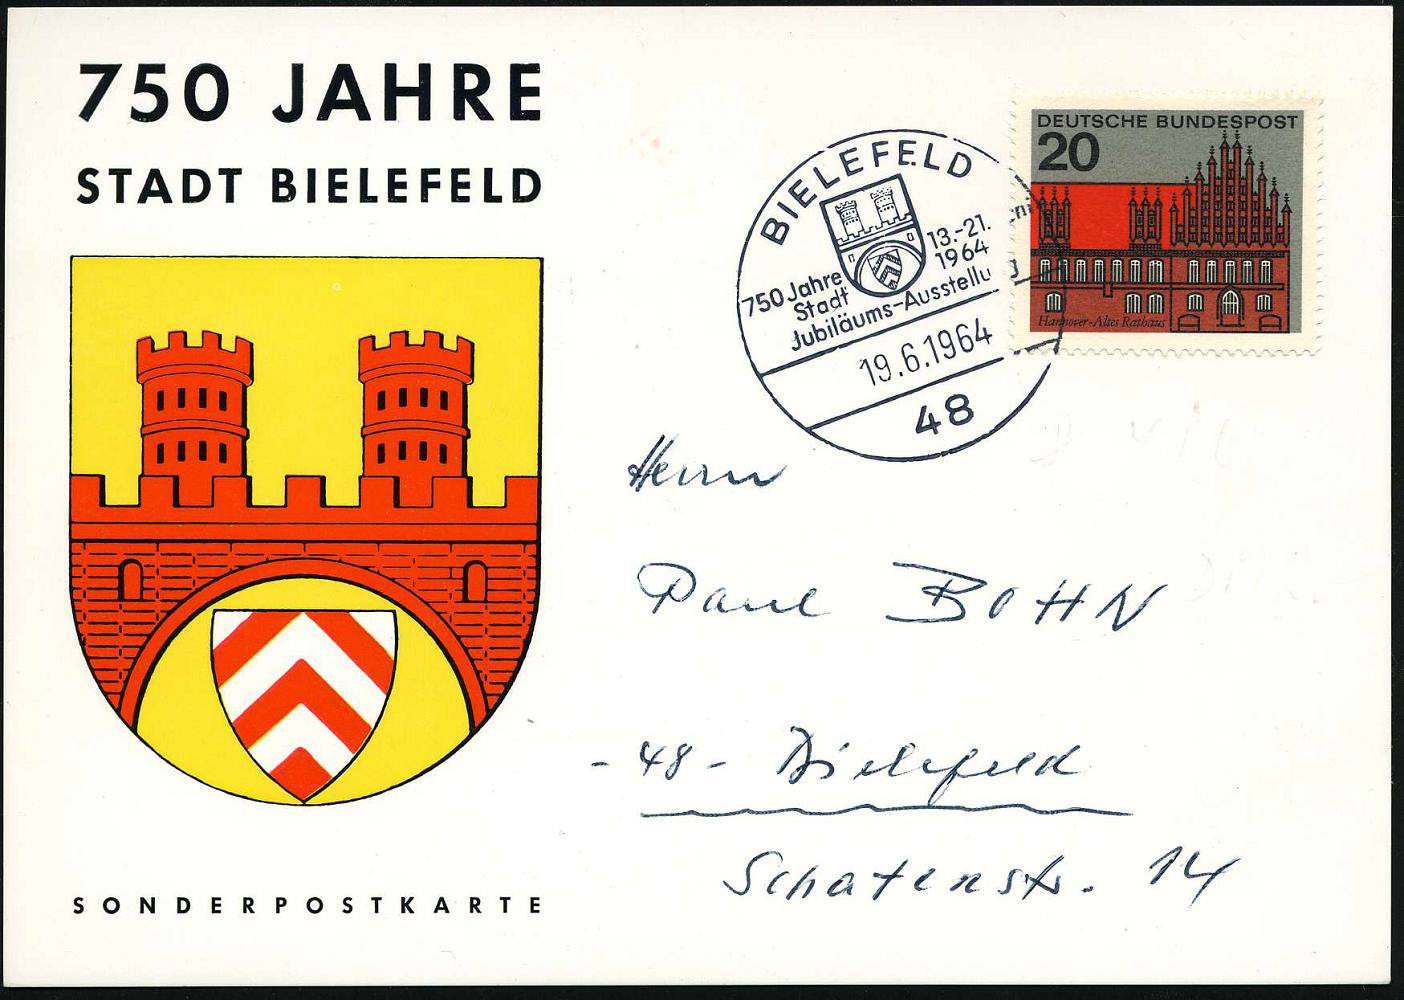 750 JAHRE
STADT BIELEFELD
SONDERPOSTKARTE
DEUTSCHE BUNDESPOST
20
Hannover-Altes Rathaus
BIELEFELD
13.-21.
1964
750 Jahre
Stadt
Jubiläums-Ausstellu
19.6.1964
48
Herrn
Paul BOHN
- 48 - Bielefeld
Schatenstr. 14